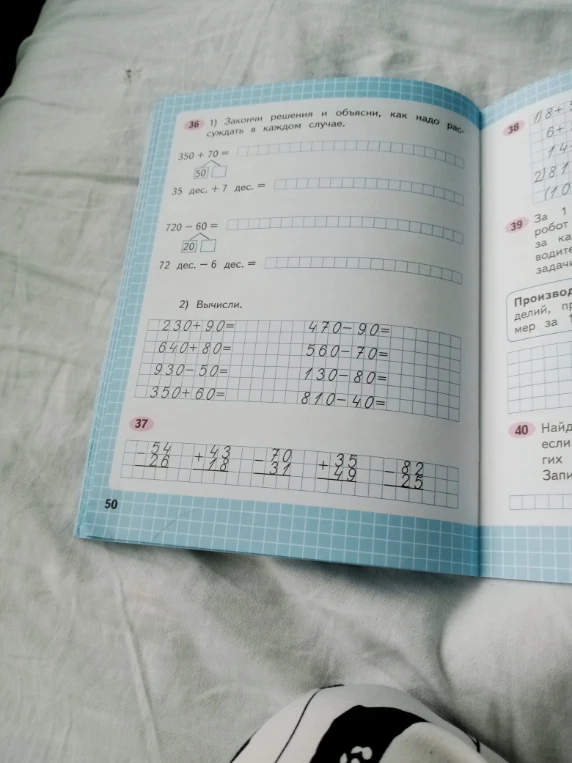 36 1) Закончи решения и объясни, как надо рас-
суждать в каждом случае.
350 + 70 =
50
35 дес. + 7 дес. =
720 − 60 =
20
72 дес. − 6 дес. =
2) Вычисли.
230+90= 470−90=
640+80= 560−70=
930−50= 130−80=
350+60= 810−40=
37
−54 +43 −70 +35 −82
26 18 31 49 25
50
38 1)8+
6+
14
2)81
(10
39 За 1
робот
за ка
водите
задач
Производ
делий, пр
мер за 1
40 Найд
если
гих
Запи